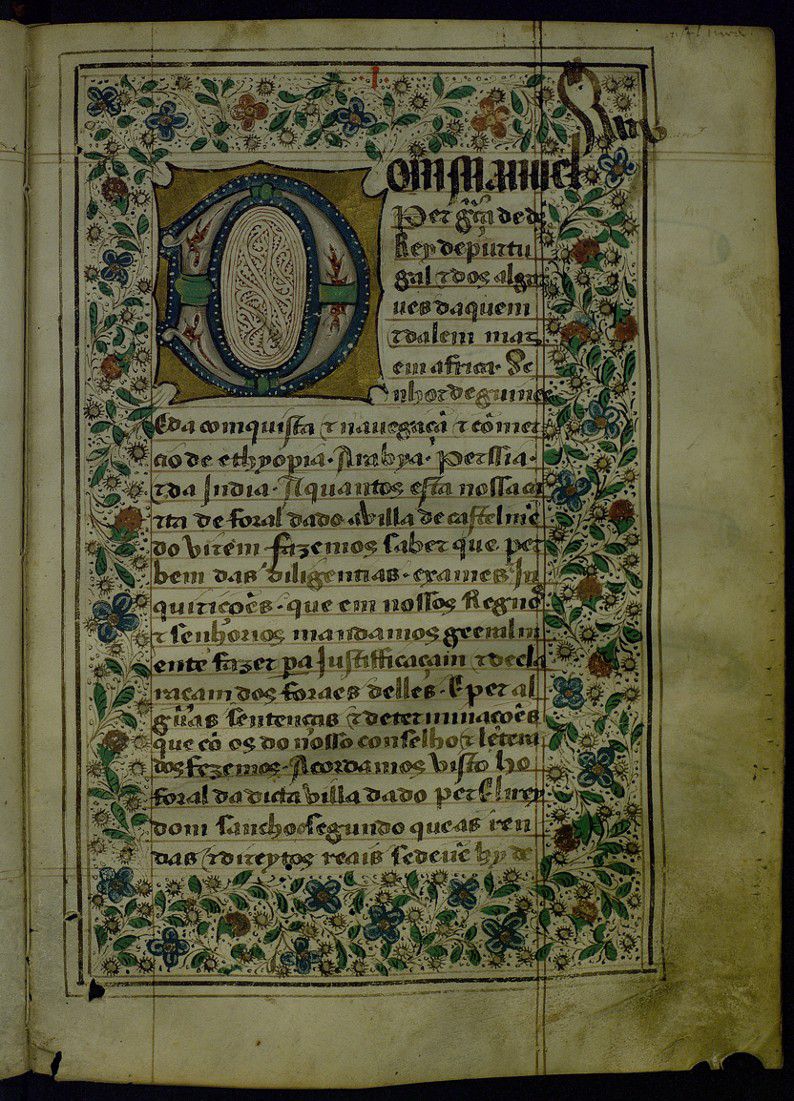 Dom Manuel
Per gr̃a de ds
Rey de purtu
gal ⁊ dos algar
ues daquem
⁊ dalem mar
em africa · Se
nhor de guinee
E da comquista ⁊ nauegaçã ⁊ cõmer
cio de ethyopia · Arabya · Perssia ·
⁊ da India · A quantos esta nossa car
rta de foral dado a villa de castel mẽ
do virem fazemos saber que per
bem das diligemtias · exames In
quiriçoẽs · que em nossos Regnos
⁊ senhorios mandamos geerallm
ente fazer pa Justifficaçam ⁊ decla
raçam dos foraes delles · E per al
gũas sentenças ⁊ determinaçoẽs
que cõ os do nosso conselho ⁊ letera
dos fezemos · Acordamos visto ho
foral da dicta villa dado per El rey
dom sancho segundo que as ren
das ⁊ direytos reais se deuẽ hy de